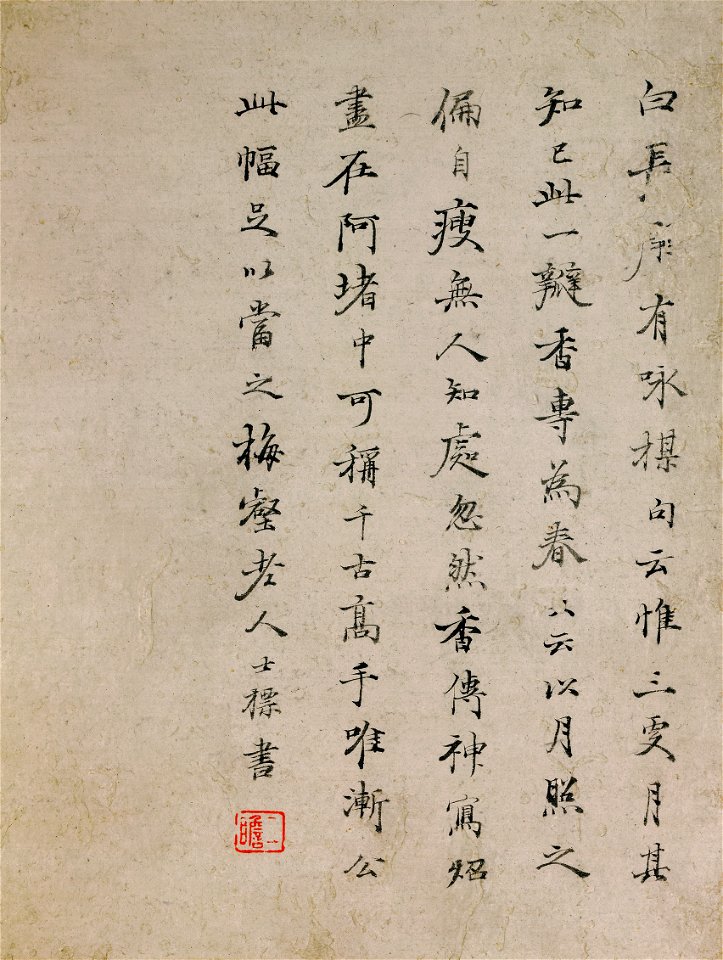 白長庚有咏楳句云惟三更月其
知己此一瓣香專為春又云以月照之
偏自瘦無人知處忽然香傳神寫炤
盡在阿堵中可稱千古高手唯漸公
此幅足以當之梅壑老人士標書
二瞻